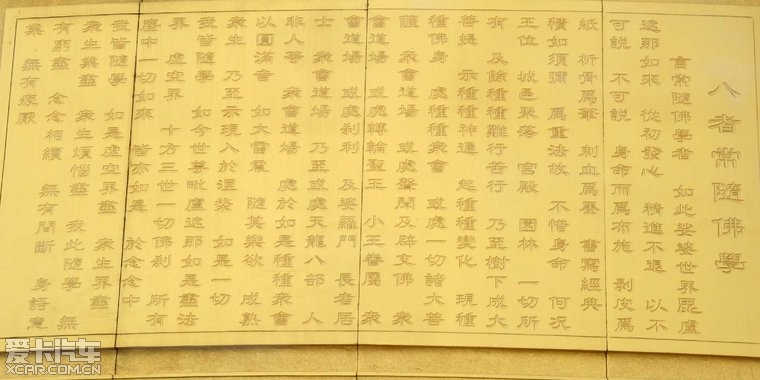 八者常隨佛學
言常隨佛學者 如此娑婆世界毘盧
遮那如來 從初發心 精進不退 以不
可說 不可說 身命而爲布施 剝皮爲
紙 析骨爲筆 刺血爲墨 書寫經典
積如須彌 爲重法故 不惜身命 何況
王位 城邑聚落 宮殿 園林 一切所
有 及餘種種難行苦行 乃至樹下成大
菩提 示種種神通 起種種變化 現種
種佛身 處種種衆會 或處一切諸大菩
薩 衆會道場 或處聲聞及辟支佛 衆
會道場 或處轉輪聖王 小王眷屬 衆
會道場 或處剎利 及婆羅門 長者居
士 衆會道場 乃至或處天龍八部 人
非人等 衆會道場 處於如是種種衆會
以圓滿音 如大雷震 隨其樂欲 成熟
衆生 乃至示現入於涅槃 如是一切
我皆隨學 如今世尊毗盧遮那如是盡法
界 虛空界 十方三世一切佛剎 所有
塵中一切如來 皆亦如是 於念念中
我皆隨學 如是虛空界盡 衆生界盡
衆生業盡 衆生煩惱盡 我此隨學 無
有窮盡 念念相續 無有間斷 身語意
業 無有疲厭
爱卡汽车
XCAR.COM.CN